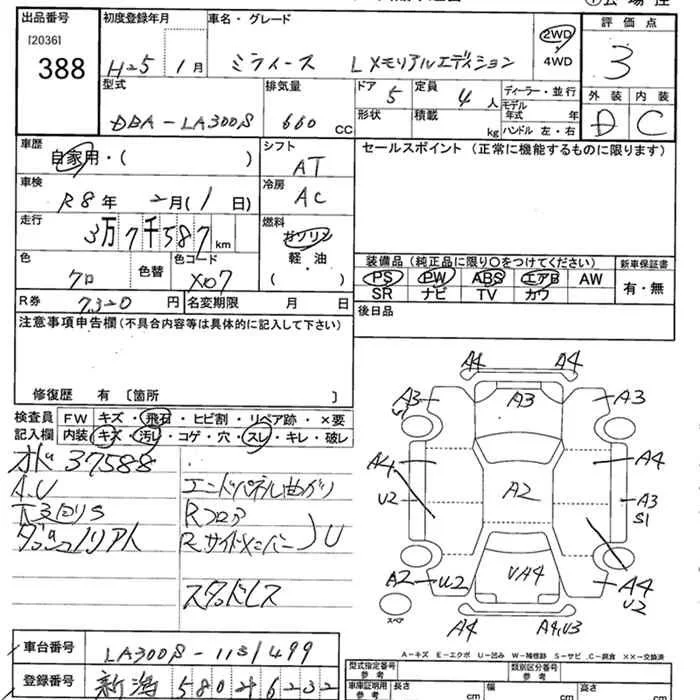 出品番号
[2036]
388
初度登録年月
H-5 1月
車名・グレード
ミライース LメモリアルエディSション
2WD
・
4WD
評価点
3
外装 内装
D C
型式
DBA-LA300S
排気量
660 CC
ドア
5
定員
4人
形状
積載
kg
ディーラー・並行
モデル年式 年
ハンドル 左・右
車歴
自家用・( )
シフト
AT
セールスポイント (正常に機能するものに限ります)
車検
R8年 2月(1日)
冷房
AC
走行
3万7千587km
燃料
ガソリン
・
軽・油
( )
色
クロ
色替
色コード
X07
装備品(純正品に限り○をつけてください)
新車保証書
PS PW ABS エアB AW
SR ナビ TV カワ
有・無
R券 7320円
名変期限 月 日
後日品
注意事項申告欄(不具合内容等は具体的に記入して下さい)
修復歴 有 〔箇所 〕
検査員記入欄
FW キズ・飛石・ヒビ割・リペア跡・×要
内装 キズ・汚レ・コゲ・穴・スレ・キレ・破レ
37588
A.U
下回りS
エンドパネル曲がり
Rフロア
Rサイドメンバー U
スタッドレス
A4 A4
A3 A3 A3
A4 A4
U2 A2 A3
S1
A2 U2 UA4 A4
U2
A4 A4,U3
スペア
A-キズ E-エクボ U-凹み W-補修跡 S-サビ C-腐食 ××-交換済
車台番号
LA300S-1131499
登録番号
新潟 580 そ 6232
型式指定番号
参考
類別区分番号
参考
車庫証明用
参考
長さ 幅 高さ